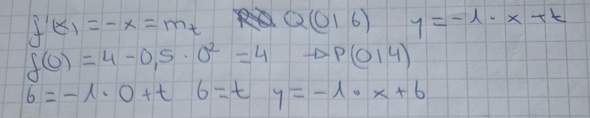 f'(x) = -x = m_t Q(0|6) y = -1·x+t
f(0) = 4 - 0,5 · 0² = 4 → P(0|4)
6 = -1 · 0 + t 6 = t y = -1 · x + 6